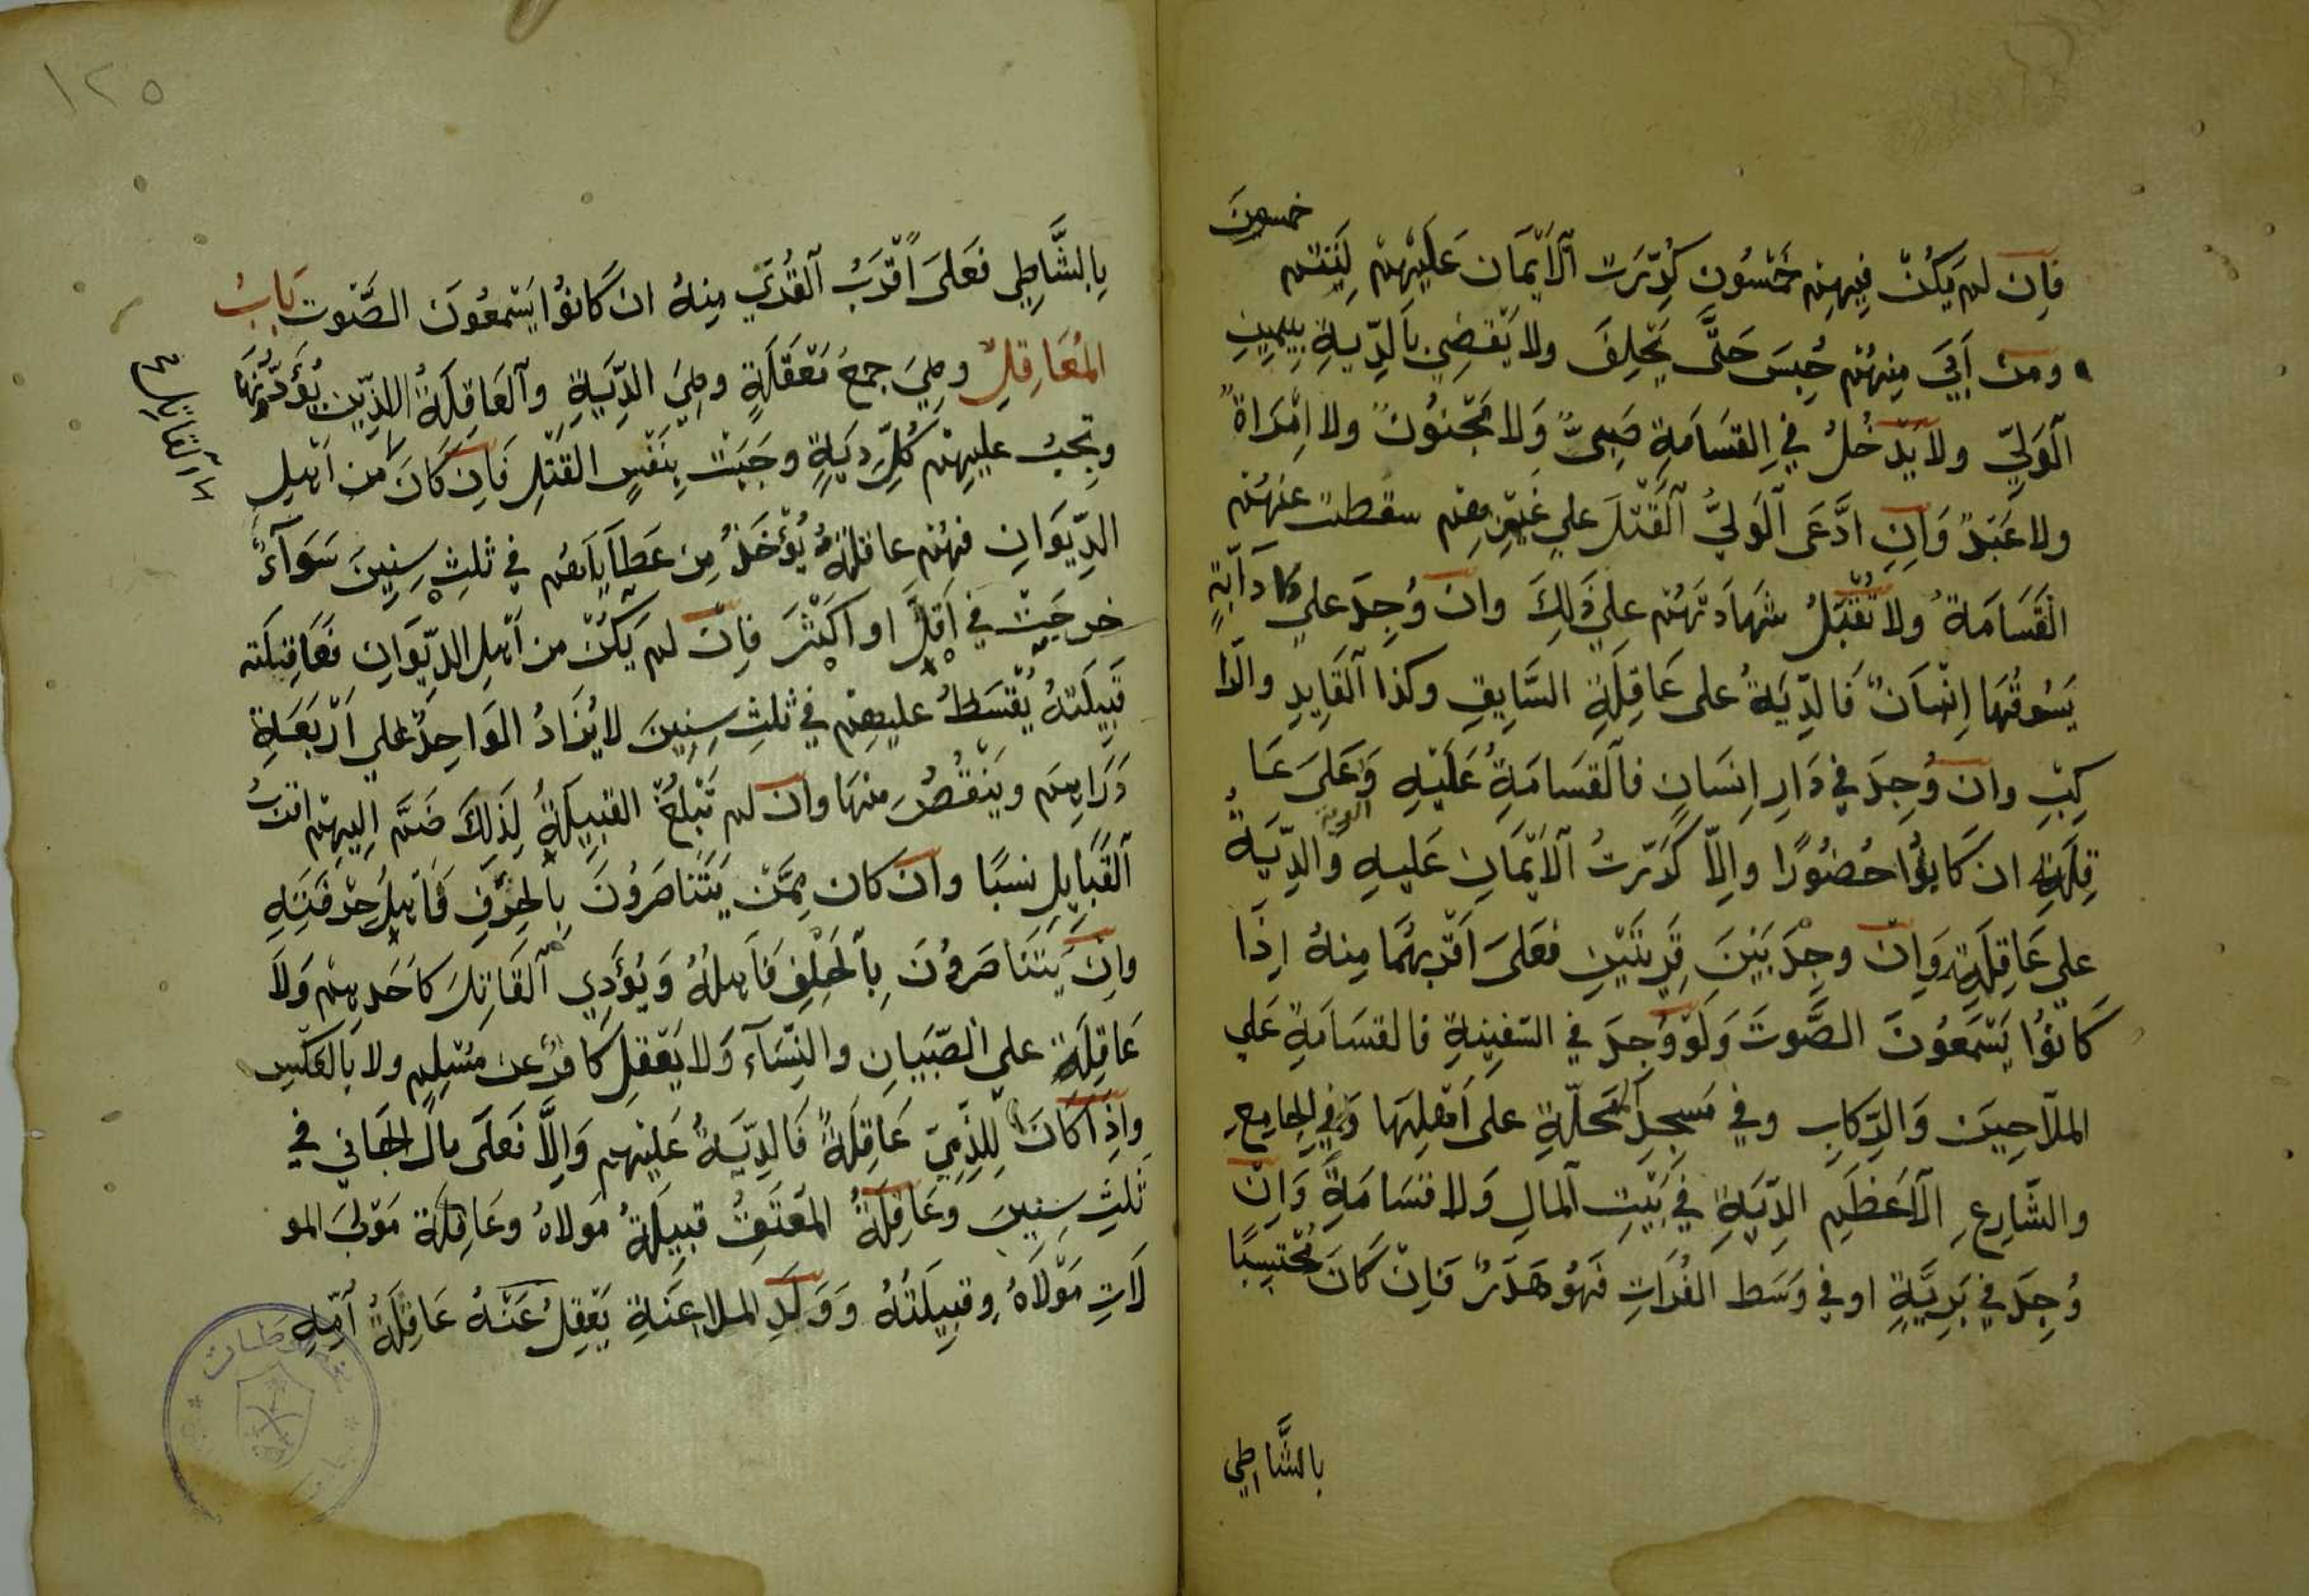 خمسون
فان لم يكن فيهم خمسون كررت الايمان عليهم لتتم
ومن ابي منهم حبس حتى يحلف ولا يقضي بالدية بيمين
الولي ولا يدخل في القسامة صبي ولا مجنون ولا امراة
ولا عبد وان ادعى الولي القتل علي غيرهم سقطت عنهم
القسامة ولا تقبل شهادتهم علي ذلك وان وجد علي دابة
يسوقها انسان فالدية على عاقلة السايق وكذا القايد والرا
كب وان وجد في دار انسان فالقسامة عليه وعلى عا
قلته ان كانوا حضورا والا كررت الايمان عليه والدية
علي عاقلته وان وجد بين قريتين فعلى اقربهما منه اذا
كانوا يسمعون الصوت ولو وجد في السفينة فالقسامة علي
الملاحين والركاب وفي مسجد محلة على اهلها وفي الجامع
والشارع الاعظم الدية في بيت المال ولا قسامة وان
وجد في برية او في وسط الفرات فهو هدر فان كان محتبسا
بالشاطي
١٢٥
بالشاطي فعلى اقرب القرى منه ان كانوا يسمعون الصوت باب
المعاقل وهي جمع معقلة وهي الدية والعاقلة الذين يؤدونها
وتجب عليهم كل دية وجبت بنفس القتل فان كان من اهل
الديوان فهم عاقلة يؤخذ من عطاياهم في ثلث سنين سوآء
خرجت في اقل او اكثر فان لم يكن من اهل الديوان فعاقلته
قبيلته يقسط عليهم في ثلث سنين لا يزاد الواحد علي اربعة
دراهم وينقص منها وان لم تبلغ القبيلة لذلك ضم اليهم اقرب
القبايل نسبا وان كان ممن يتناصرون بالحرف فاهل حرفته
وان يتناصرون بالحلف فاهله ويؤدي القاتل كاحدهم ولا
عاقلة علي الصبيان والنسآء ولا يعقل كافر عن مسلم ولا بالعكس
واذا كان للذمي عاقلة فالدية عليهم والا فعلى مال الجاني في
ثلث سنين وعاقلة المعتق قبيلة مولاه وعاقلة مولى المو
لات مولاه وقبيلته وولد الملاعنة يعقل عنه عاقلة امه